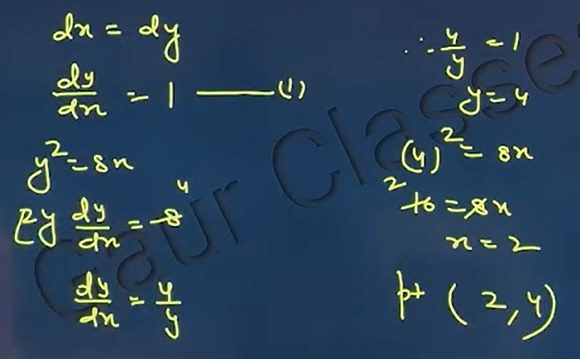 dx = dy
dy/dx = 1 —— (1)
y² = 8x
2y dy/dx = 8 4
dy/dx = 4/y
∴ 4/y = 1
y = 4
(4)² = 8x
2 16 = 8x
x = 2
pt (2, 4)
Gaur Classes